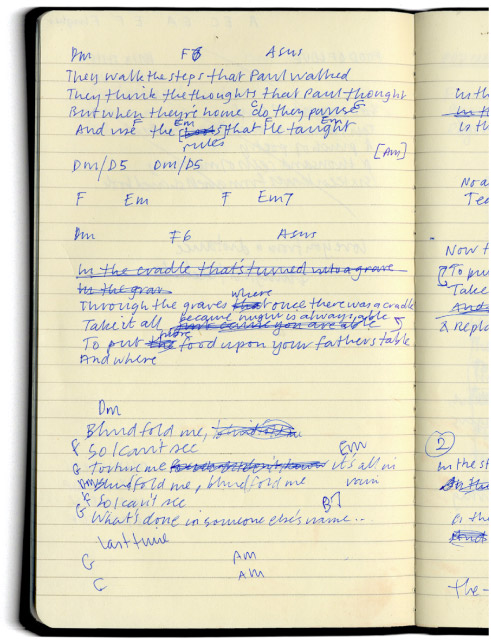 Dm F6 Asus
They walk the steps that Paul walked
They think the thoughts that Paul thought
But when they're home do they pause
C G
And use the that he taught
Em F Em
rules
[Am]
Dm/D5 Dm/D5
F Em F Em7
Dm F6 Asus
In the cradle that's turned into a grave
In the grave
Through the graves where once there was a cradle
Take it all because might is always able
just cause you are able
To put more food upon your father's table
And where
Dm
Blindfold me, blindfold me
F So I can't see
Em
G Torture me it's all in
vain
Dm Blindfold me, blindfold me
F So I can't see
B7
G What's done in someone else's name..
last time
G Am
C AM
In th
In th
Is th
No a
Tea
Now t
To pu
Take
And
& Repla
2
In the st
is the
the -